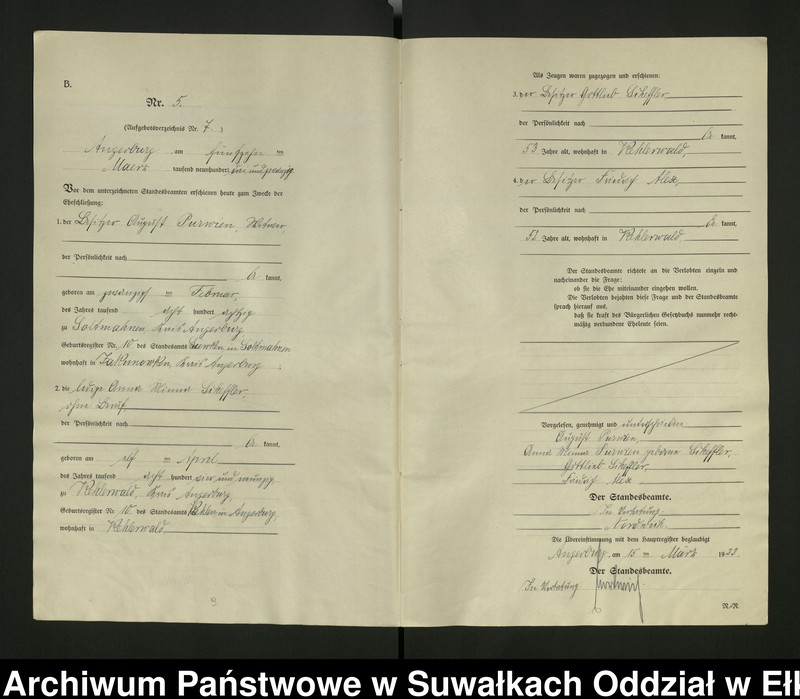 B.
Nr. 5.
(Aufgebotsverzeichnis Nr. 7.)
Angerburg am fünfzehn ten
Maerz tausend neunhundert drei und zwanzig
Vor dem unterzeichneten Standesbeamten erschienen heute zum Zwecke der
Eheschließung:
1. der Besitzer August Purwien, Witwer
der Persönlichkeit nach
be kannt,
geboren am zwanzigsten Februar,
des Jahres tausend acht hundert achtzig
zu Soltmahnen, Kreis Angerburg
Geburtsregister Nr. 10 des Standesamts in Soltmahnen
wohnhaft in Jakunowken, Kreis Angerburg.
2. die ledige Anna Minna Scheffler,
ohne Beruf
der Persönlichkeit nach
be kannt,
geboren am elf ten April
des Jahres tausend acht hundert vier und neunzig
zu Kehlerwald, Kreis Angerburg
Geburtsregister Nr. 10 des Standesamts Kehlen in Angerburg,
wohnhaft in Kehlerwald
9
Als Zeugen waren zugezogen und erschienen:
3. der Besitzer Gottlieb Scheffler
der Persönlichkeit nach
be kannt,
53 Jahre alt, wohnhaft in Kehlerwald,
4. der Besitzer Friedrich Alex,
der Persönlichkeit nach
be kannt,
52 Jahre alt, wohnhaft in Kehlerwald
Der Standesbeamte richtete an die Verlobten einzeln und
nacheinander die Frage:
ob sie die Ehe miteinander eingehen wollen.
Die Verlobten bejahten diese Frage und der Standesbeamte
sprach hierauf aus,
daß sie kraft des Bürgerlichen Gesetzbuchs nunmehr recht-
mäßig verbundene Eheleute seien.
Vorgelesen, genehmigt und unterschrieben
August Purwien,
Anna Minna Purwien geborene Scheffler,
Gottlieb Scheffler,
Friedrich Alex
Der Standesbeamte.
In Vertretung
Die Übereinstimmung mit dem Hauptregister beglaubigt
Angerburg, am 15 ten März 1923.
Der Standesbeamte.
In Vertretung
Archiwum Państwowe w Suwałkach Oddział w Eł